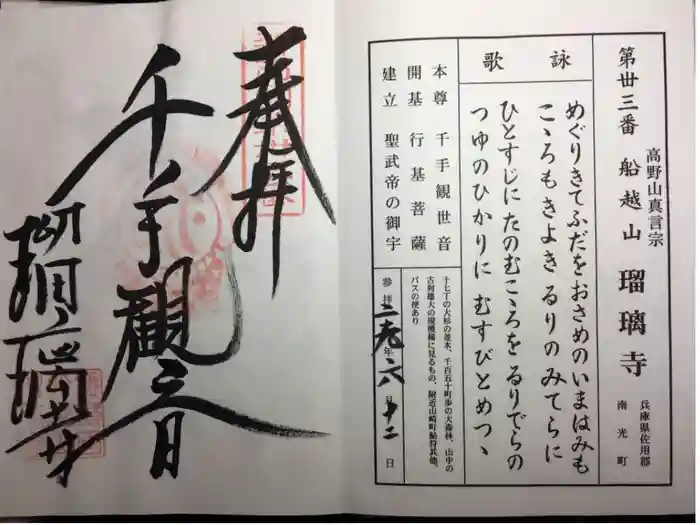 第廿三番 船越山 瑠璃寺
高野山真言宗
兵庫県佐用郡
南光町
詠歌
めぐりきてふだをおさめのいまはみも
こゝろもきよきるりのみてらに
ひとすじにたのむこゝろをるりでらの
つゆのひかりにむすびとめつゝ
本尊 千手観世音
開基 行基菩薩
建立 聖武帝の御宇
十七丁の大杉の並木、千百五十町歩の大森林、山中の
古刹雄大の規模稀に見るもの、附近山崎町鮎狩其他、
バスの便あり
参拝 二九年 六月十二日
奉拝
千手観音
瑠璃寺